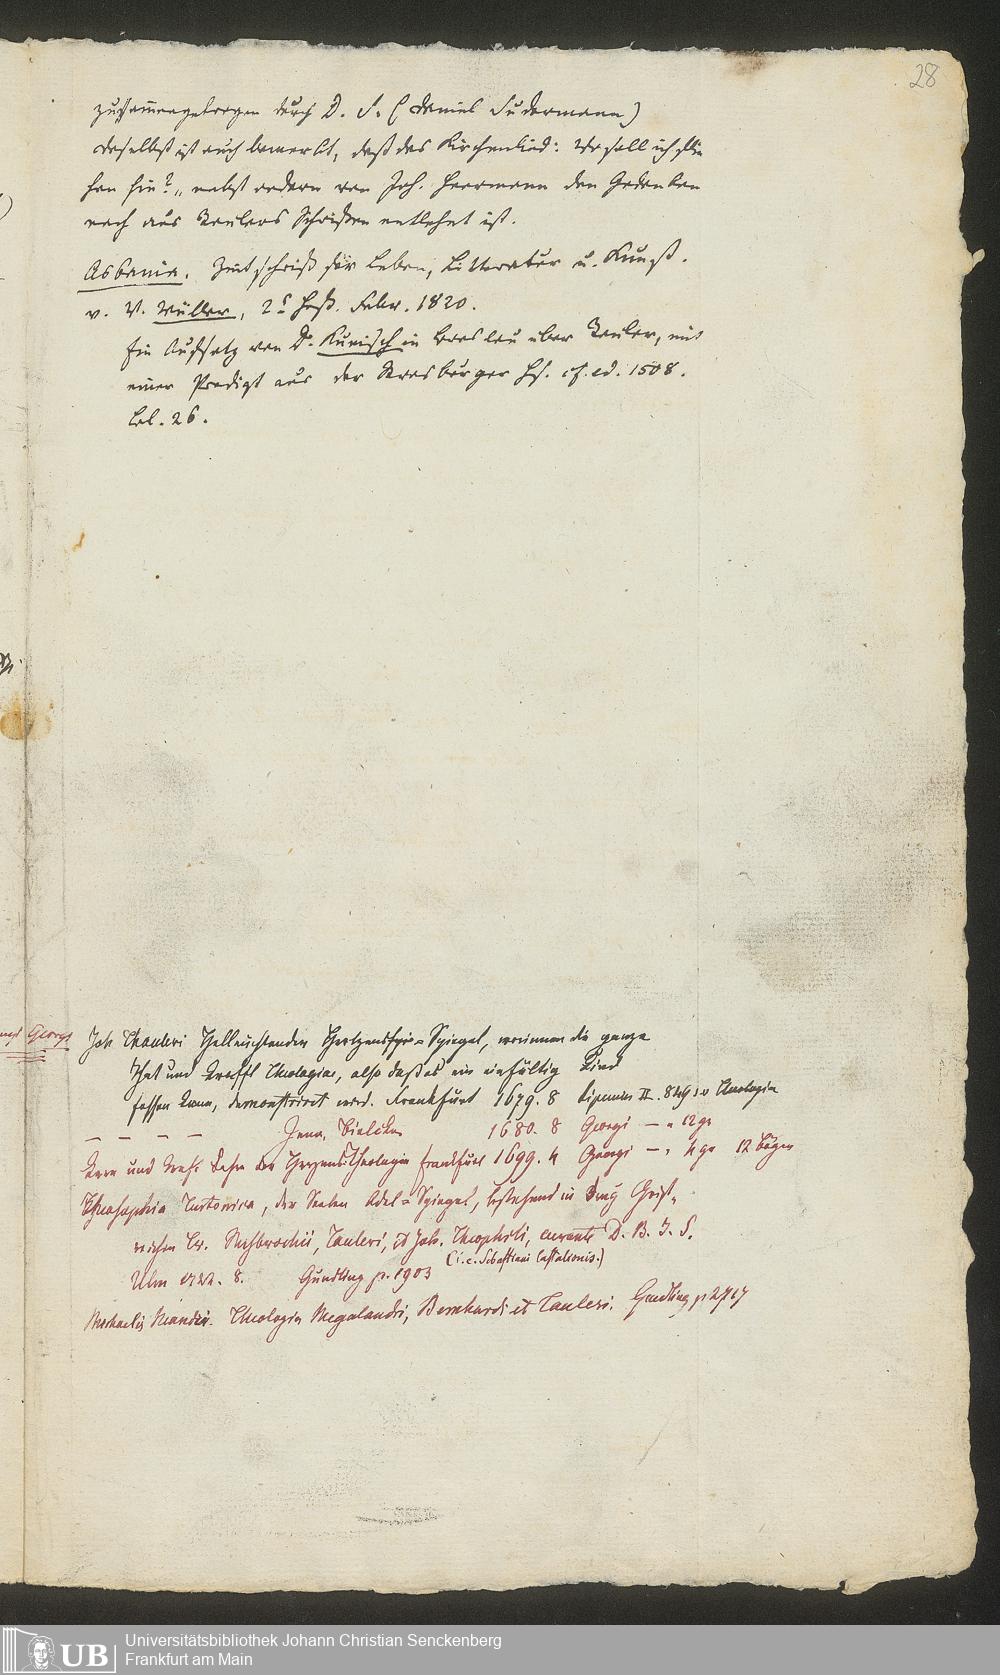 28
zusammengetragen durch D. S. (Daniel Sudermann)
daselbst ist auch bemerkt, daß das Kirchenlied: Wo soll ich flie
hen hin? „ nebst andern von Joh. Heermann den Gedanken
nach aus Taulers Schriften entlehnt ist.
Askania. Zeitschrift für Leben, Litteratur u. Kunst.
v. W. Müller, 2s Heft. Febr. 1820.
Ein Aufsatz von Dr. Kunisch in Breslau über Tauler, mit
einer Predigt aus der Strasburger Hs. cf. ed. 1508.
bl. 26.
Georgi
Joh Thauleri Helleuchtender Hertzens Spiegel, worinnen die ganze
und Krafft Theologiae, also daß es ein einfältig Kind
fassen kann, demonstriret wird. Frankfurt 1679. 8 Lipenius II. 849 sv Theologia
— — — — Jena, Bielcke 1680. 8 Georgi — „ 12 gr
Kern und Lehre der Herzens-theologie Frankfurt 1699. 4 Georgi — „ 4 gr 12 bögen
Theosophia Teutonica, der Seelen Adel-Spiegel, bestehend in Geist-
reichen Tr. Rusbrochii, Tauleri, et Joh. Theophili, curante D. B. J. S.
(i.e. Sebastiani Castalionis.)
Ulm 1722. 8. Gundling p. 1903
Michaelis Neandri. Theologia Megalandri, Bernhardi et Tauleri. Gundling p
Universitätsbibliothek Johann Christian Senckenberg
UB Frankfurt am Main